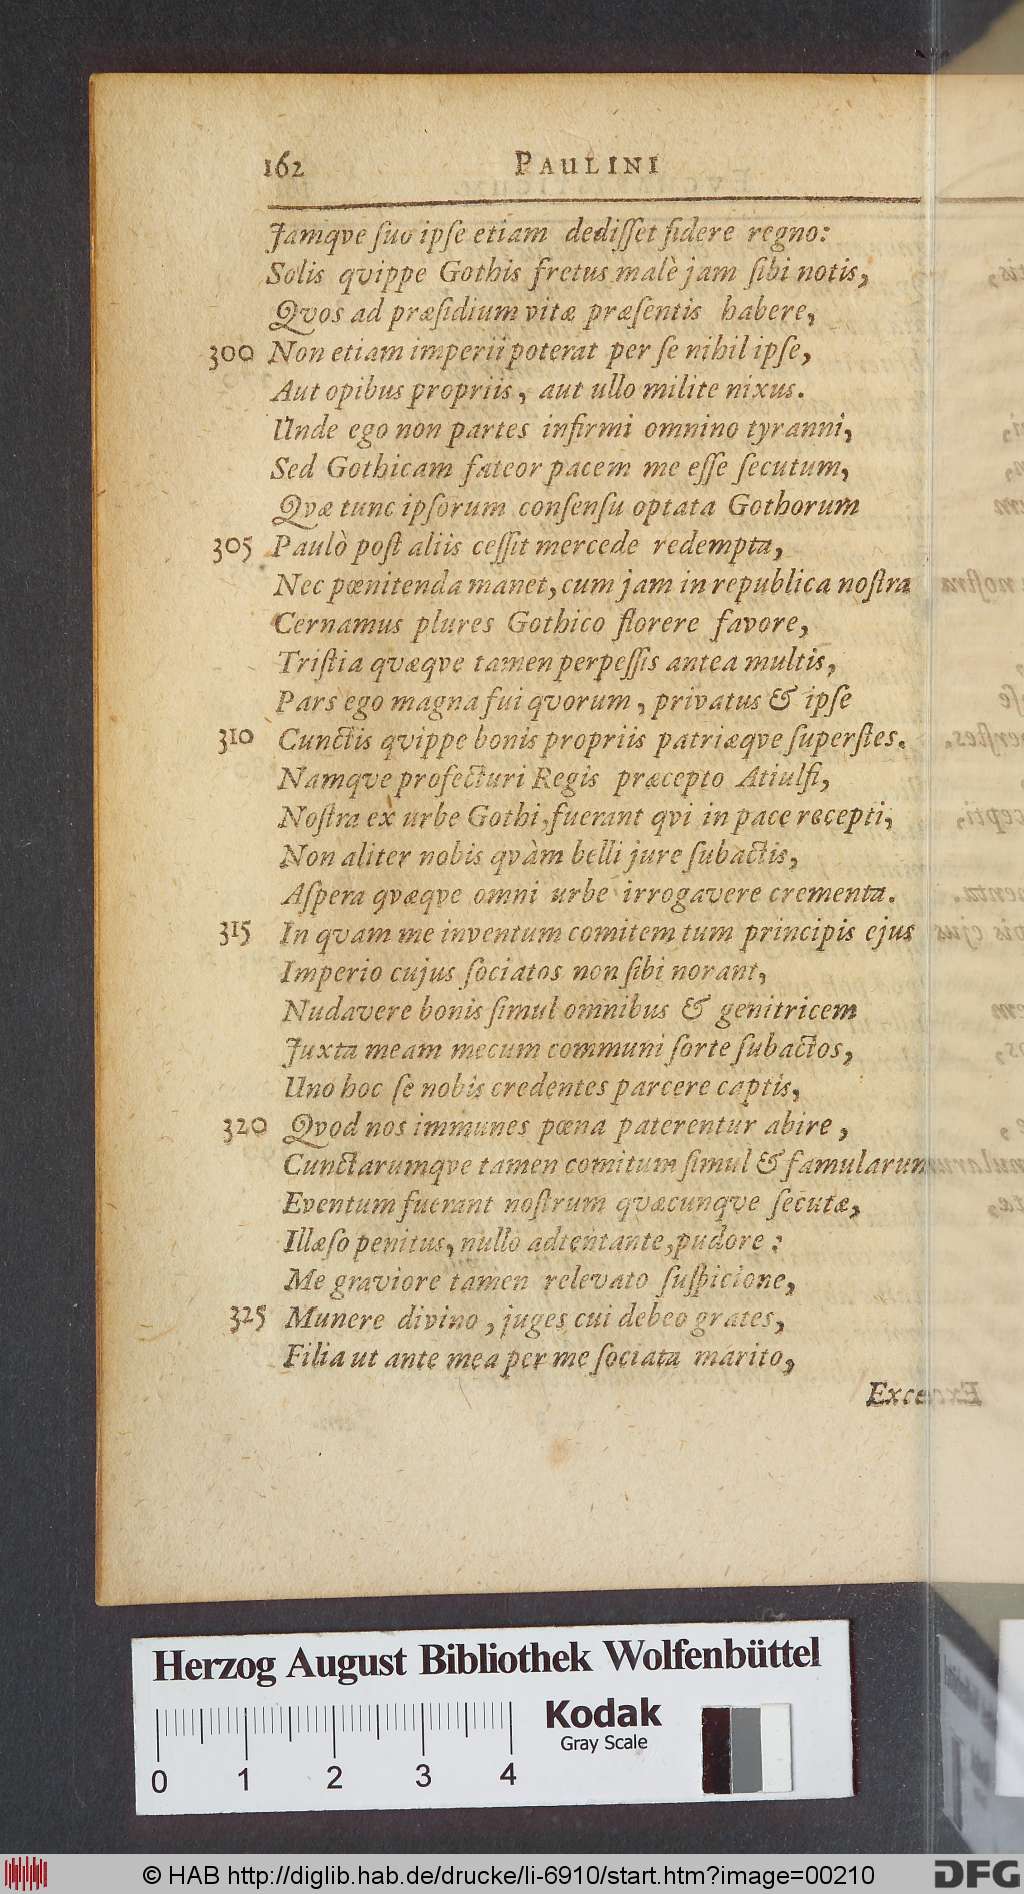 162 PAULINI
Jamqve ſuo ipſe etiam dediſſet ſidere regno:
Solis qvippe Gothis fretus malè jam ſibi notis,
Qvos ad præſidium vitæ præſentis habere,
300 Non etiam imperii poterat per ſe nihil ipſe,
Aut opibus propriis, aut ullo milite nixus.
Unde ego non partes infirmi omnino tyranni,
Sed Gothicam fateor pacem me eſſe ſecutum,
Qvæ tunc ipſorum conſenſu optata Gothorum
305 Paulò poſt aliis ceſſit mercede redempta,
Nec pœnitenda manet, cum jam in republica noſtra
Cernamus plures Gothico florere favore,
Triſtia qvæqve tamen perpeſſis antea multis,
Pars ego magna fui qvorum, privatus & ipſe
310 Cunctis qvippe bonis propriis patriæqve ſuperſtes.
Namqve profecturi Regis præcepto Atiulfi,
Noſtra ex urbe Gothi, fuerant qvi in pace recepti,
Non aliter nobis qvàm belli jure ſubactis,
Aſpera qvæqve omni urbe irrogavere crementa.
315 In qvam me inventum comitem tum principis ejus
Imperio cujus ſociatos non ſibi norant,
Nudavere bonis ſimul omnibus & genitricem
Juxta meam mecum communi ſorte ſubactos,
Uno hoc ſe nobis credentes parcere captis,
320 Qvod nos immunes pœna paterentur abire,
Cunctarumqve tamen comitum ſimul & famularum
Eventum fuerant noſtrum qvæcunqve ſecutæ,
Illæſo penitus, nullo adtentante, pudore:
Me graviore tamen relevato ſuſpicione,
325 Munere divino, juges cui debeo grates,
Filia ut ante mea per me ſociata marito,
Herzog August Bibliothek Wolfenbüttel
Kodak
Gray Scale
0 1 2 3 4
© HAB http://diglib.hab.de/drucke/li-6910/start.htm?image=00210
DFG